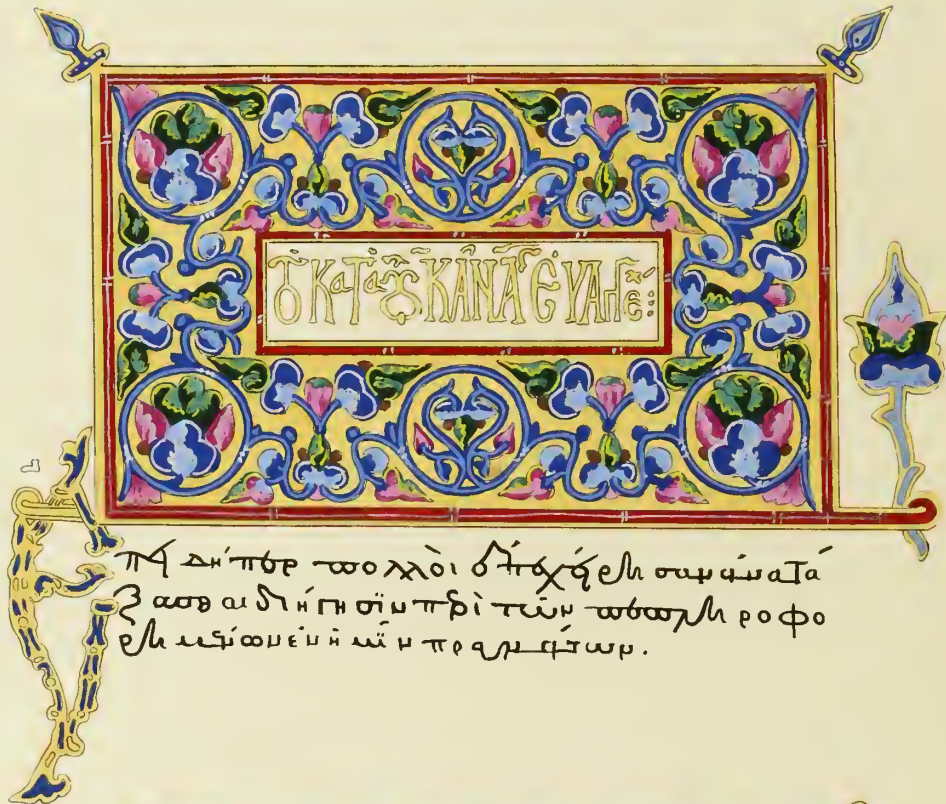 Τὸ ΚατὰΛουΚᾶΝ Ἅγ ΕΥΑγγέ:
Ἐπειδήπερ πολλοὶ ἐπεχείρησαν ἀνατά
ξασθαι διήγησϊν περὶ τῶν πεπληροφο
ρημένων ἐν ἡμῖν πραγμάτων.